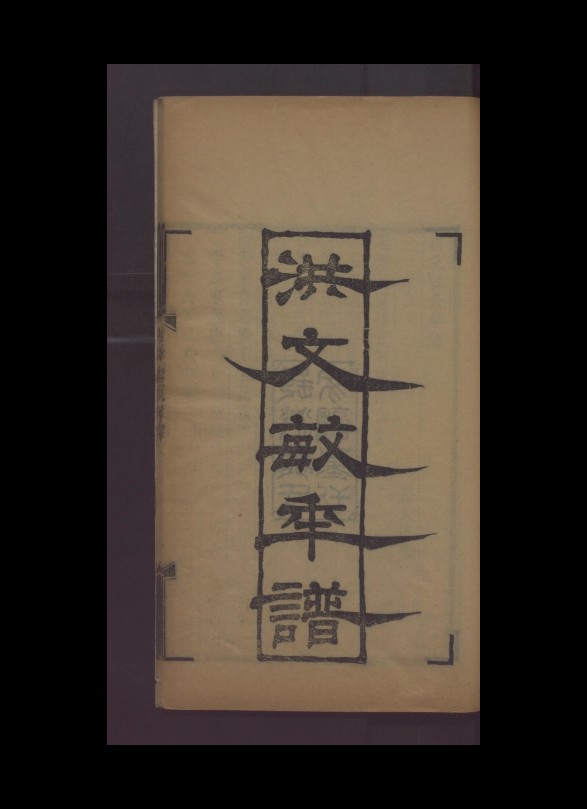 洪文敏年譜